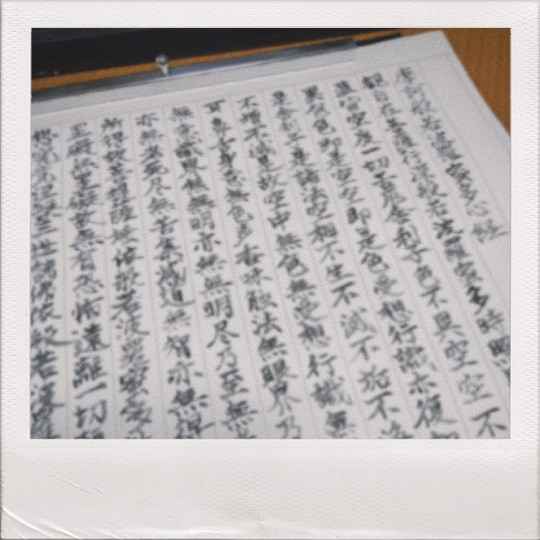 摩訶般若波羅蜜多心経
観自在菩薩行深般若波羅蜜多時照
蘊皆空度一切苦厄舎利子色不異空空不
異色色即是空空即是色受想行識亦復
是舎利子是諸法空相不生不滅不垢不
不増不減是故空中無色無受想行識無
耳鼻舌身意無色声香味触法無眼界乃
無意識界無無明亦無無明尽乃至無
亦無老死尽無苦集滅道無智亦無得
所得故菩提薩埵依般若波羅蜜多
罣礙無罣礙故無有恐怖遠離一切顛
想究竟涅槃三世諸仏依般若波羅